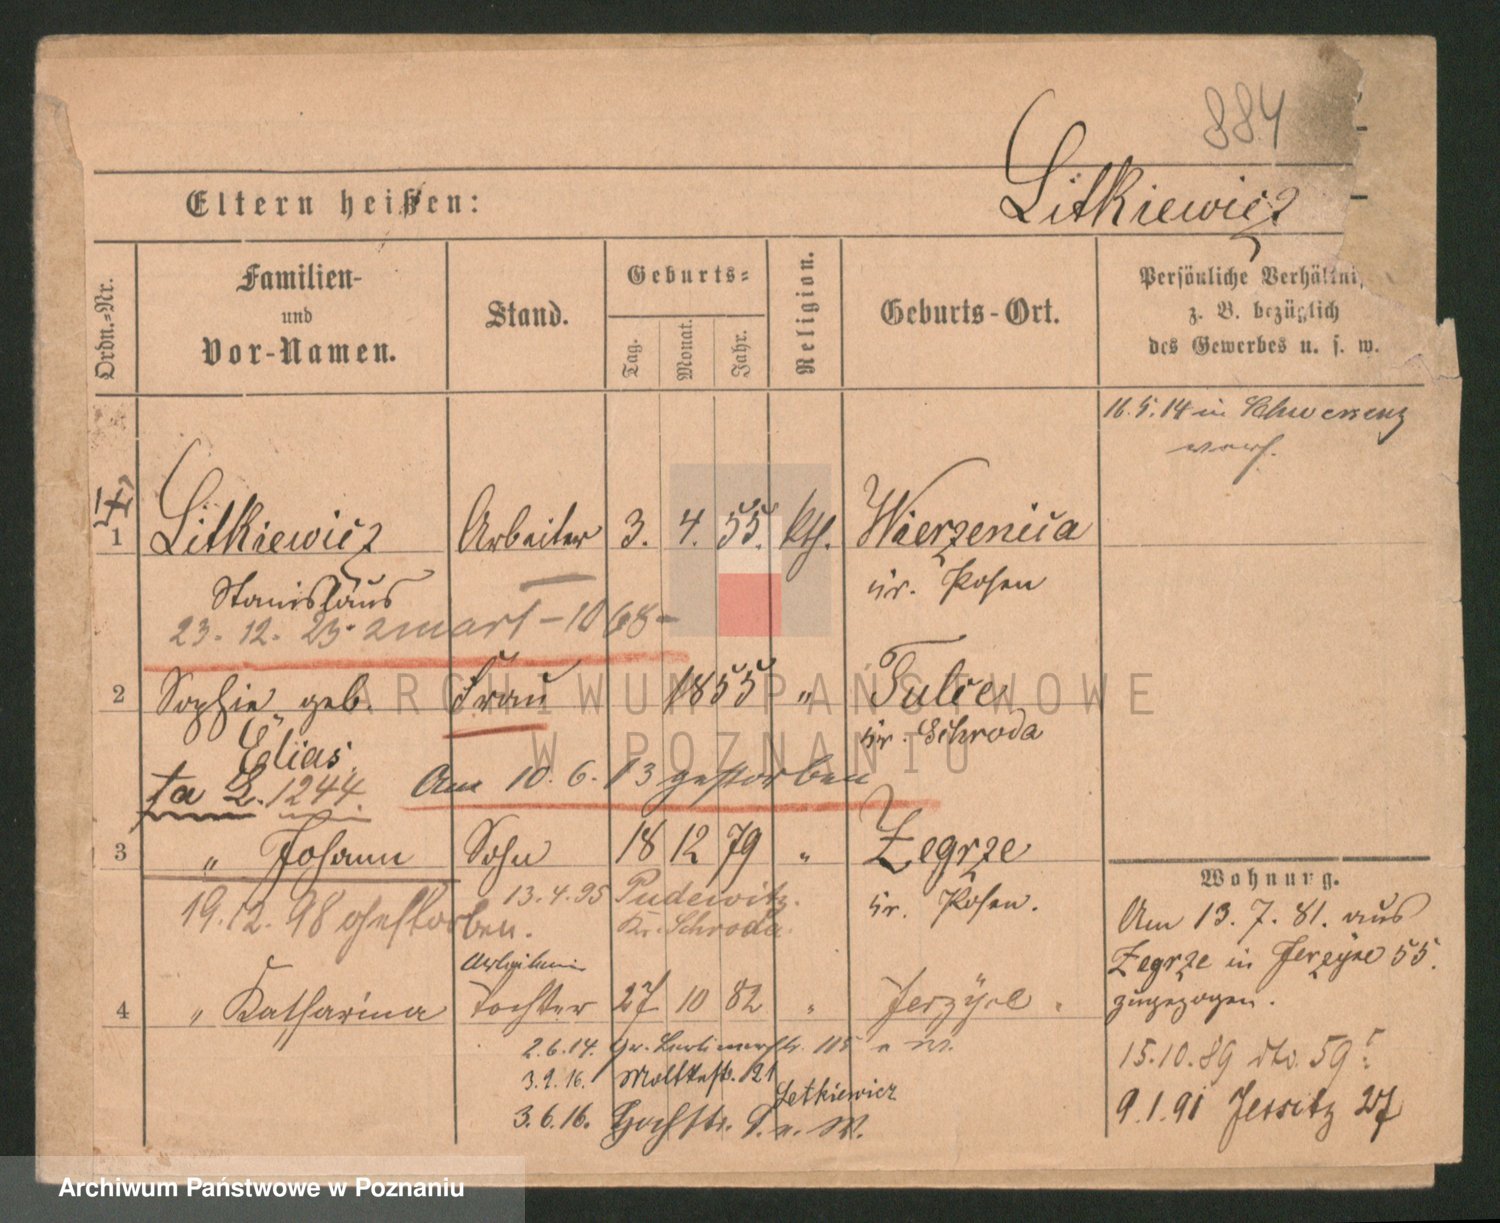 884
Litkiewicz
Eltern heißen:
Ordn.=Nr.
Familien-
und
Vor-Namen.
Stand.
Geburts=
Tag.
Monat.
Jahr.
Religion.
Geburts-Ort.
Persönliche Verhältni
z. B. bezüglich
des Gewerbes u. s. w.
16.5.14 in Schwersenz
1 Litkiewicz Arbeiter 3. 4. 55. kth. Wierzenica
Stanislaus Kr. Posen
23. 12. 23.
2 Sophie geb. Frau 1855 " Tulce
Elias. Kr. Schroda
1244. Am 10. 6. 13 gestorben
3 " Johann Sohn 18 12 79 " Zegrze
13.4.95 Pudewitz. Kr. Posen.
19.12.98 gestorben. Kr. Schroda.
Arbeiterin
4 " Katharina Tochter 27 10 82 " Jerzyce "
2.6.14. Gr. Berlinerstr. 115
3.2.16. Moltkestr. 121
Letkiewicz
3.6.16. Hochstr.
Wohnung.
Am 13. 7. 81. aus
Zegrze in Jerzyce 55.
zugezogen.
15.10.89 dto. 59
9.1.91 Jersitz 27
ARCHIWUM PAŃSTWOWE
W POZNANIU
Archiwum Państwowe w Poznaniu